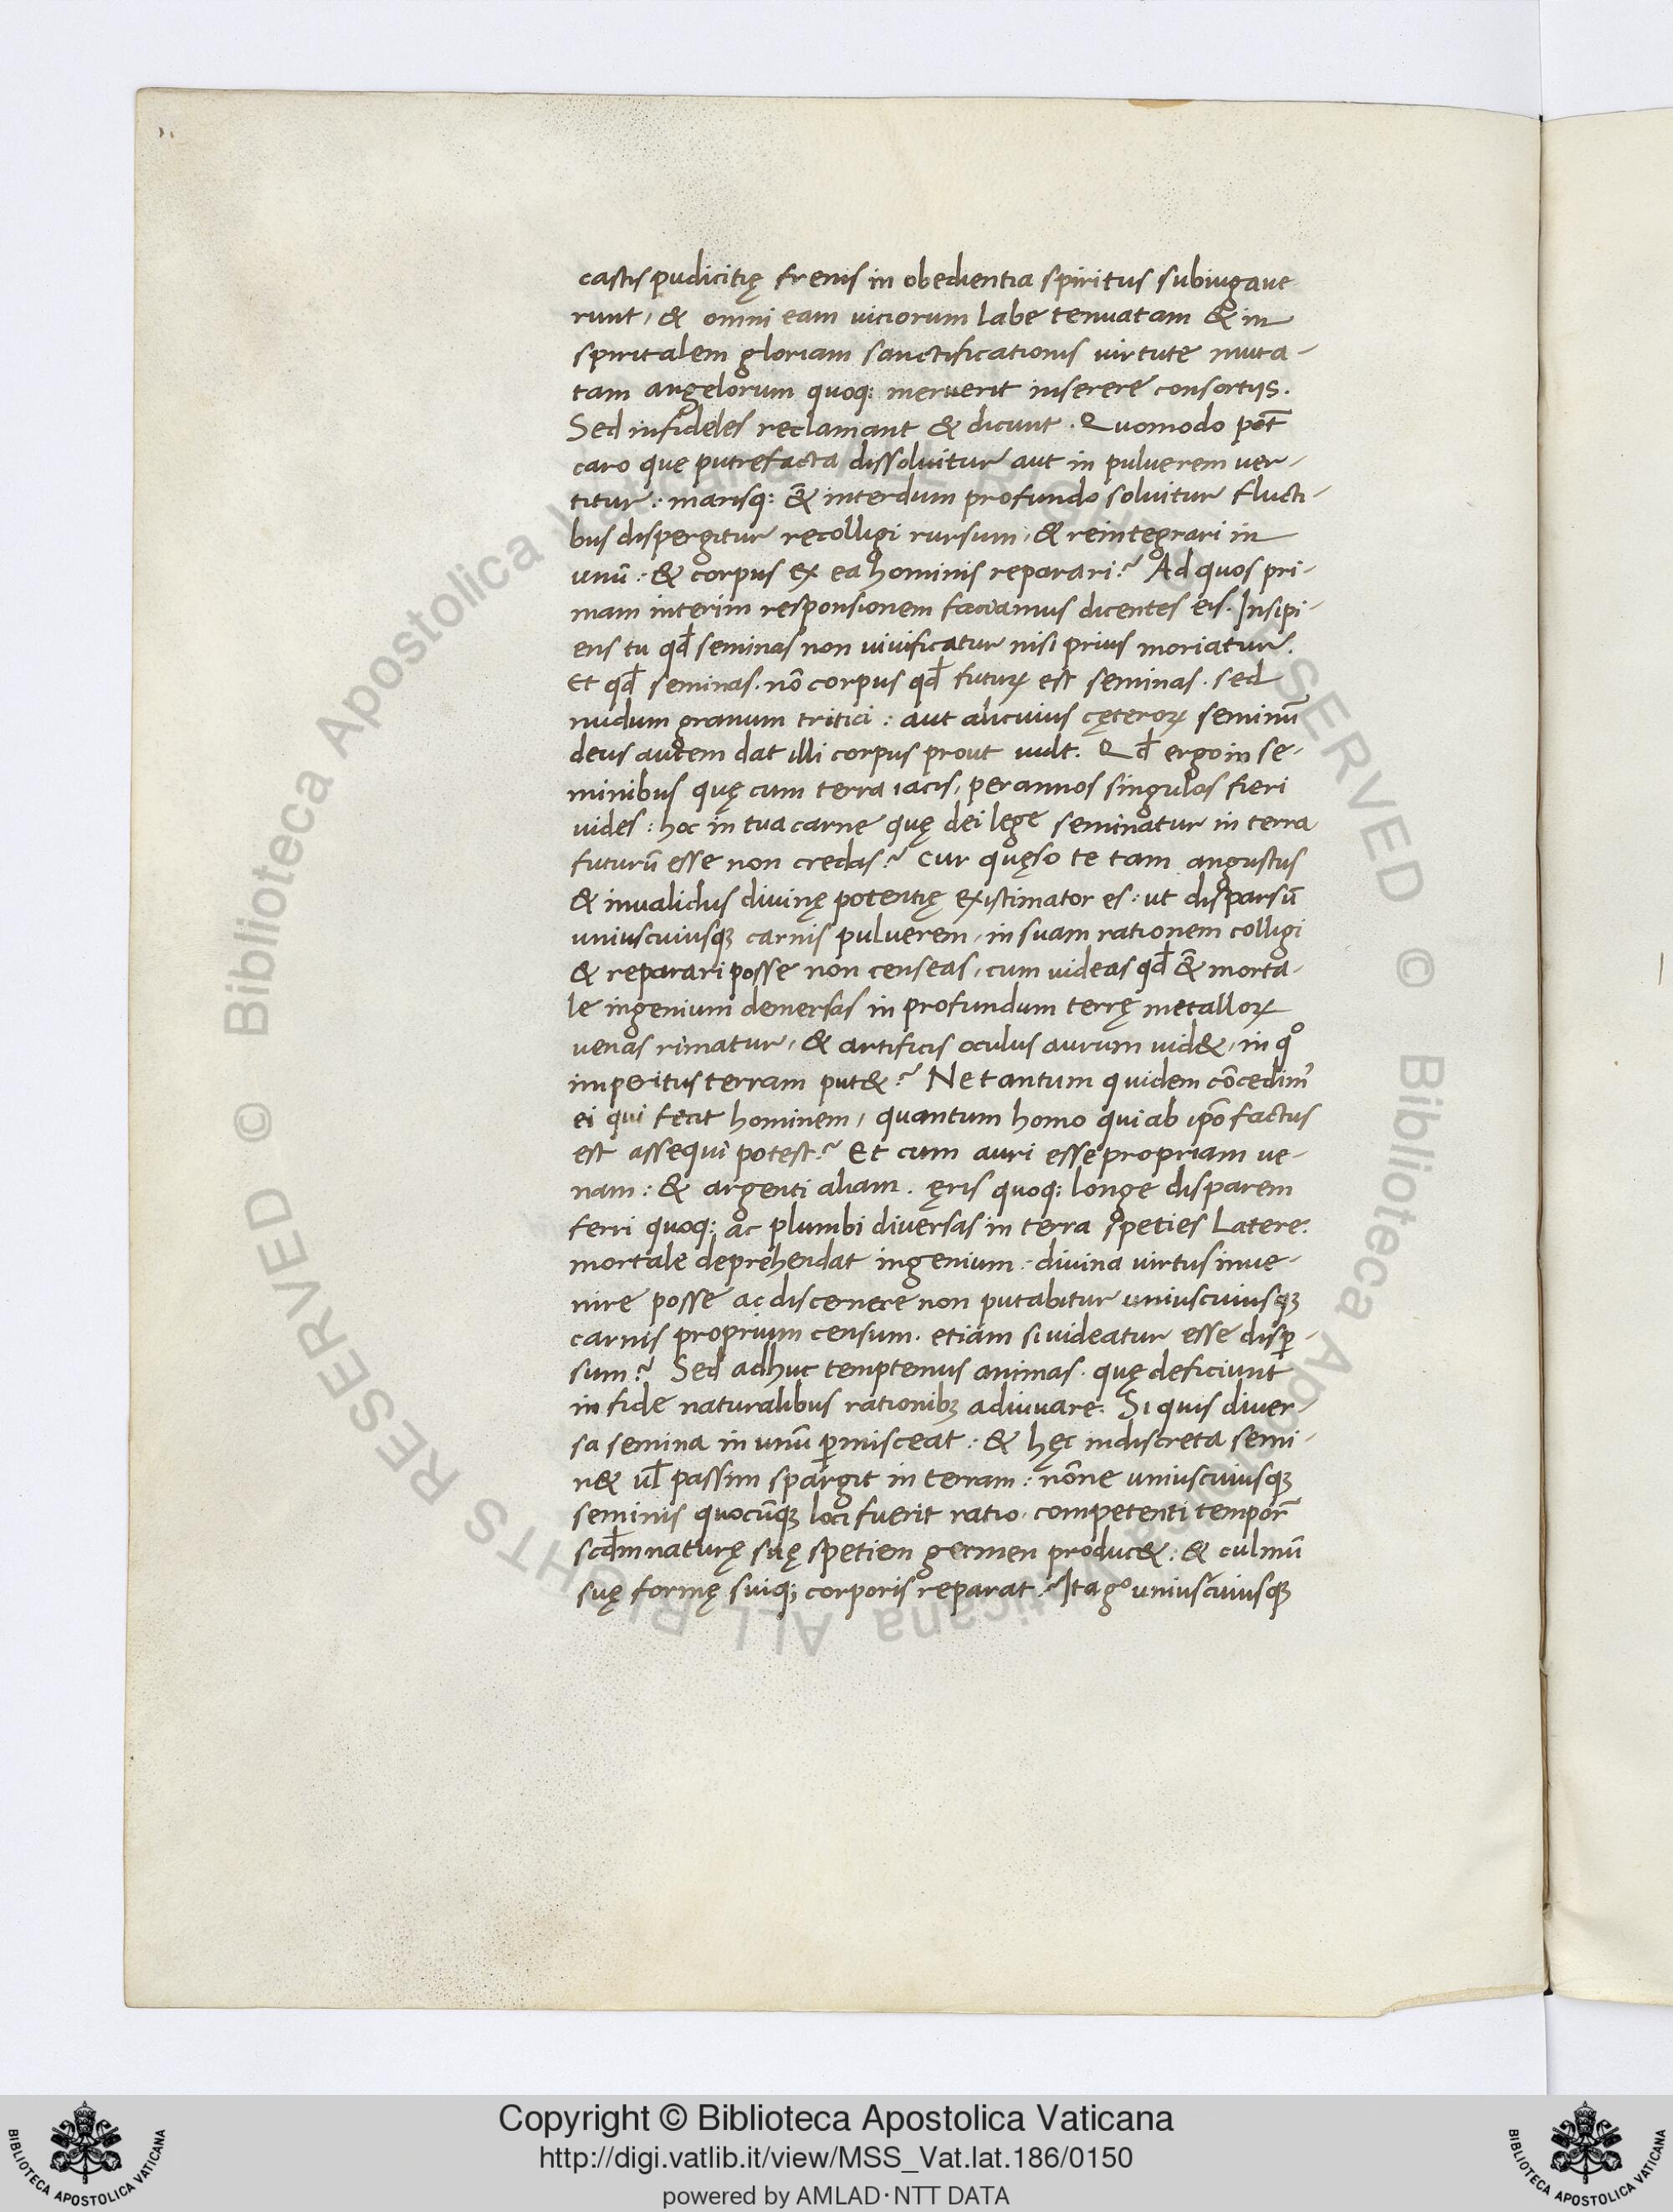 castis pudicitię frenis in obedientia spiritus subiugaue
runt, & omni eam uiciorum labe tenuatam & in
spiritalem gloriam sanctificationis uirtute muta-
tam angelorum quoq: meruerit inserere consortijs.
Sed infideles reclamant & dicunt. Quomodo pot̄
caro que putrefacta dissoluitur aut in puluerem uer-
titur: marisq: &̄ interdum profundo soluitur flucti-
bus dispergitur recolligi rursum, & reintegrari in
unū: & corpus ex ea hominis reparari? Ad quos pri-
mam interim responsionem faciamus dicentes eis. Insipi-
ens tu qđ seminas non uiuificatur nisi prius moriatur.
Et qđ seminas. nō corpus qđ futuꝝ est seminas. sed
nudum granum tritici: aut alicuius cęteroꝝ seminū
deus autem dat illi corpus prout uult. Qđ ergo in se-
minibus quę cum terra iacis, per annos singulos fieri
uides: hoc in tua carne quę dei lege seminatur in terra
futurū esse non credas? Cur quęso te tam angustus
& inualidus diuinę potentię existimator es: ut disparsū
uniuscuiusqꝫ carnis puluerem, in suam rationem colligi
& reparari posse non censeas, cum uideas qđ &̄ morta-
le ingenium demersas in profundum terrę metalloꝝ
uenas rimatur, & artificis oculus aurum uid&, in qͦ
imperitus terram put&? Ne tantum quidem cōcedim᾽
ei qui fecit hominem, quantum homo qui ab ip̄o factus
est assequi potest? Et cum auri esse propriam ue-
nam: & argenti aliam. ęris quoq; longe disparem
ferri quoq: ac plumbi diuersas in terra speties latere.
mortale deprehendat ingenium: diuina uirtus inue-
nire posse ac discernere non putabitur uniuscuiusqꝫ
carnis proprium censum. etiam si uideatur esse disꝑ-
sum? Sed adhuc temptemus animas. quę deficiunt
in fide naturalibus rationibꝫ adiuuare. Si quis diuer-
sa semina in unū ꝑmisceat: & hęc indiscreta semi-
n& ul̄ passim spargit in terram: nōne uniuscuiusqꝫ
seminis quocūqꝫ loci fuerit ratio. competenti tempor̄
scđm naturę suę spetiem germen produc&: & culmū
suę formę suiq; corporis reparat? Ita gͦ uniuscuiusqꝫ
Copyright © Biblioteca Apostolica Vaticana
http://digi.vatlib.it/view/MSS_Vat.lat.186/0150
powered by AMLAD·NTT DATA
BIBLIOTECA APOSTOLICA VATICANA
BIBLIOTECA APOSTOLICA VATICANA
© Biblioteca Apostolica Vaticana ALL RIGHTS RESERVED
© Biblioteca Apostolica Vaticana ALL RIGHTS RESERVED